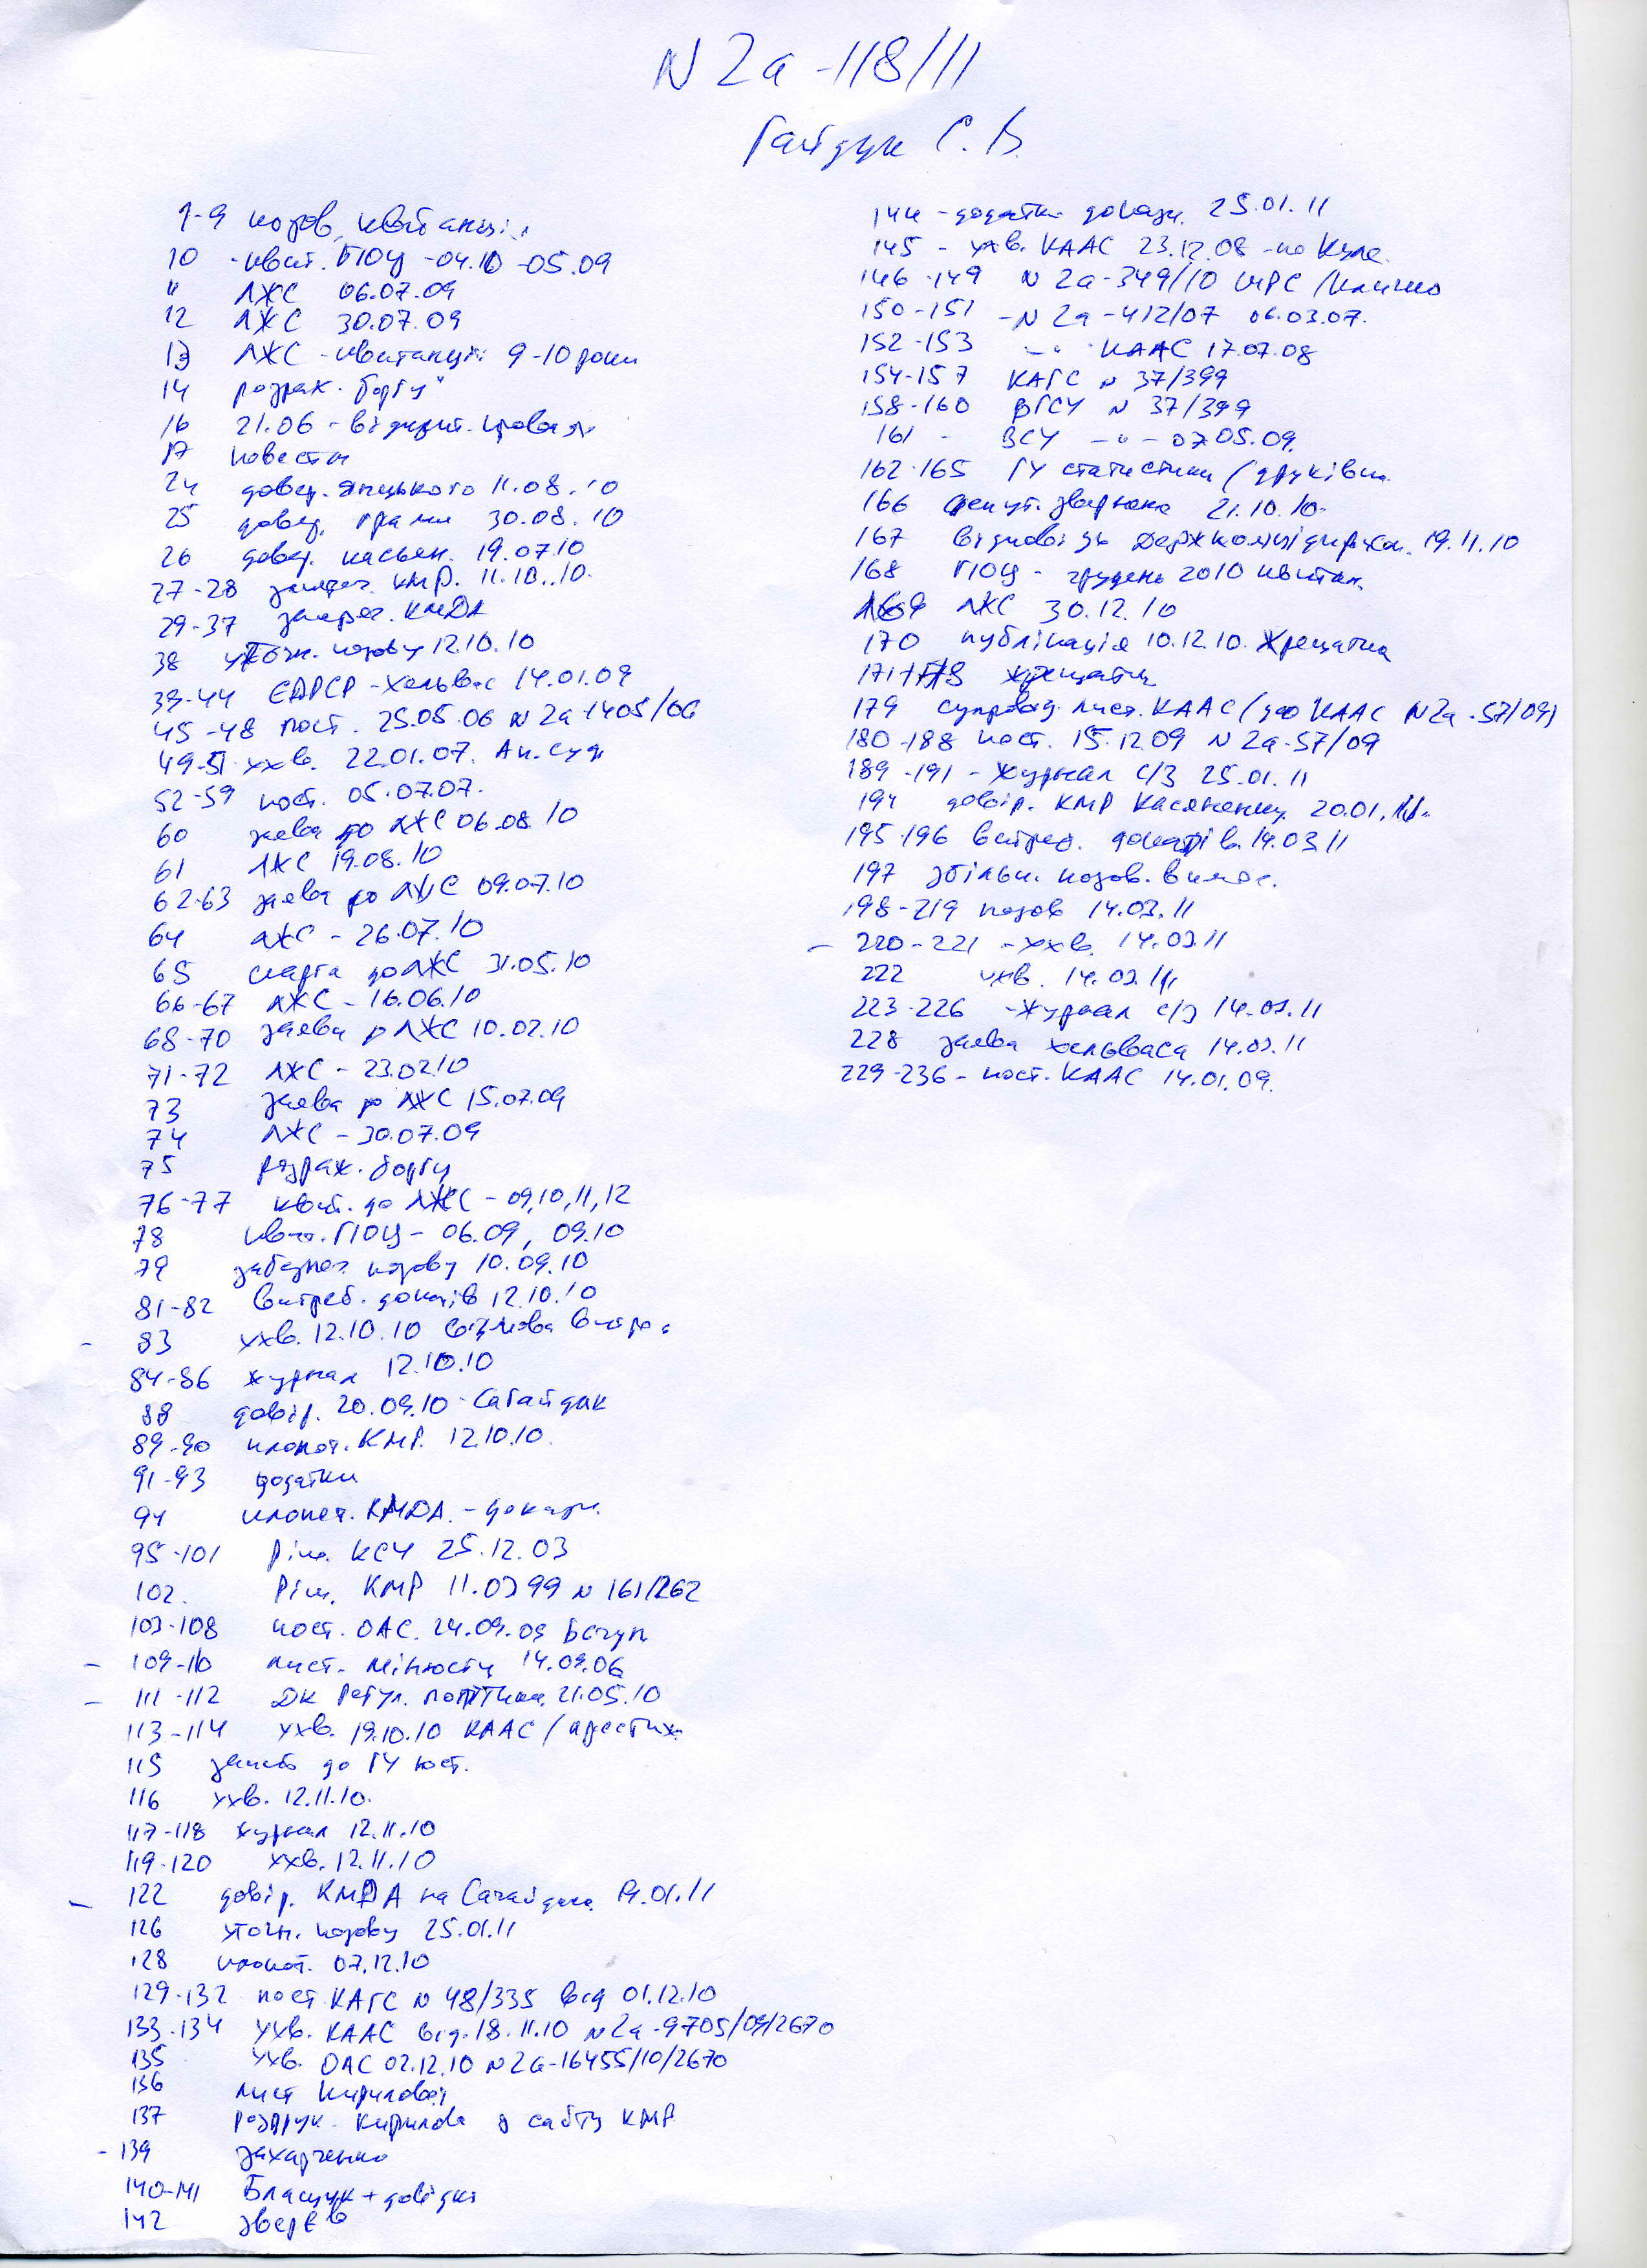 N 2а-118/11
Гайдук С. В.
1-9 позов, квитанції
10 - квит. ГІОЦ -04.10 -05.09
" ЛЖС 06.07.09
12 ЛЖС 30.07.09
13 ЛЖС - квитанції 9-10 роки
14 розрах. боргу
16 21.06 - відкрит. провадж
17 повестки
24 довер. 11.08.10
25 довер. 30.08.10
26 довер. касьян. 19.07.10
27-28 запереч. КМР. 11.10.10.
29-37 запереч. КМДА
38 уточн. позову 12.10.10
39-44 ЄДРСР - Хельвас 14.01.09
45-48 пост. 25.05.06 N 2а-1405/06
49-51 ухв. 22.01.07. Ап. суд
52-59 пост. 05.07.07.
60 заява до ЛЖС 06.08.10
61 ЛЖС 19.08.10
62-63 заява до ЛЖС 09.07.10
64 ЛЖС - 26.07.10
65 скарга до ЛЖС 31.05.10
66-67 ЛЖС - 16.06.10
68-70 заява р ЛЖС 10.02.10
71-72 ЛЖС - 23.02.10
73 заява до ЛЖС 15.07.09
74 ЛЖС - 30.07.09
75 розрах. боргу
76-77 квит. до ЛЖС - 09,10,11,12
78 квит. ГІОЦ - 06.09, 09.10
79 забезпеч. позову 10.09.10
81-82 витреб. доказів 12.10.10
- 83 ухв. 12.10.10 відмова
84-86 журнал 12.10.10
88 довір. 20.09.10 - Сагайдак
89-90 клопот. КМР. 12.10.10.
91-93 додатки
94 клопот. КМДА. - докази.
95-101 Ріш. КСУ 25.12.03
102. Ріш. КМР 11.03 99 N 161/262
103-108 пост. ОАС. 24.09.09 вступ
- 109-110 лист. Мінюсту 14.09.06
- 111-112 ДК Регул. політика 21.05.10
113-114 ухв. 19.10.10 КААС /
115 запит до ГУ юст.
116 ухв. 12.11.10.
117-118 журнал 12.11.10
119-120 ухв. 12.11.10
- 122 довір. КМДА на Сагайдака 19.01.11
126 уточн. позову 25.01.11
128 клопот. 07.12.10
129-132 пост КАГС N 48/335 від 01.12.10
133-134 ухв. КААС від. 18.11.10 N 2а-9705/09/2670
135 ухв. ОАС 02.12.10 N 2а-16455/10/2670
136 лист Кирилової
137 роздрук. Кирилова з сайту КМР
- 139 Захарченко
140-141 Блащук + довідки
142 Зверєв
144 - додатки докази. 25.01.11
145 - ухв. КААС 23.12.08 - по
146-149 N 2а-349/10 ШРС / Кличко
150-151 - N 2а-412/07 06.03.07.
152-153 -"- КААС 17.07.08
154-157 КАГС N 37/399
158-160 ВГСУ N 37/399
161 - ВСУ -"- 07.05.09.
162-165 ГУ статистики (друківка
166 депут. звернення 21.10.10.
167 відповідь Держкомпідприєм. 19.11.10
168 ГІОЦ - грудень 2010 квитан.
169 ЛЖС 30.12.10
170 публікація 10.12.10. Хрещатик
171-178 Хрещатик
179 супровод. лист. КААС (до КААС N2а-57/09)
180-188 пост. 15.12.09 N 2а-57/09
189-191 - журнал с/з 25.01.11
194 довір. КМР Касяненку 20.01.11.
195-196 витреб. доказів. 14.03.11
197 збільш. позов. вимог.
198-219 позов 14.03.11
- 220-221 - ухв. 14.03.11
222 ухв. 14.03.11
223-226 - журнал с/з 14.03.11
228 заява Хельваса 14.03.11
229-236 - пост. КААС 14.01.09.